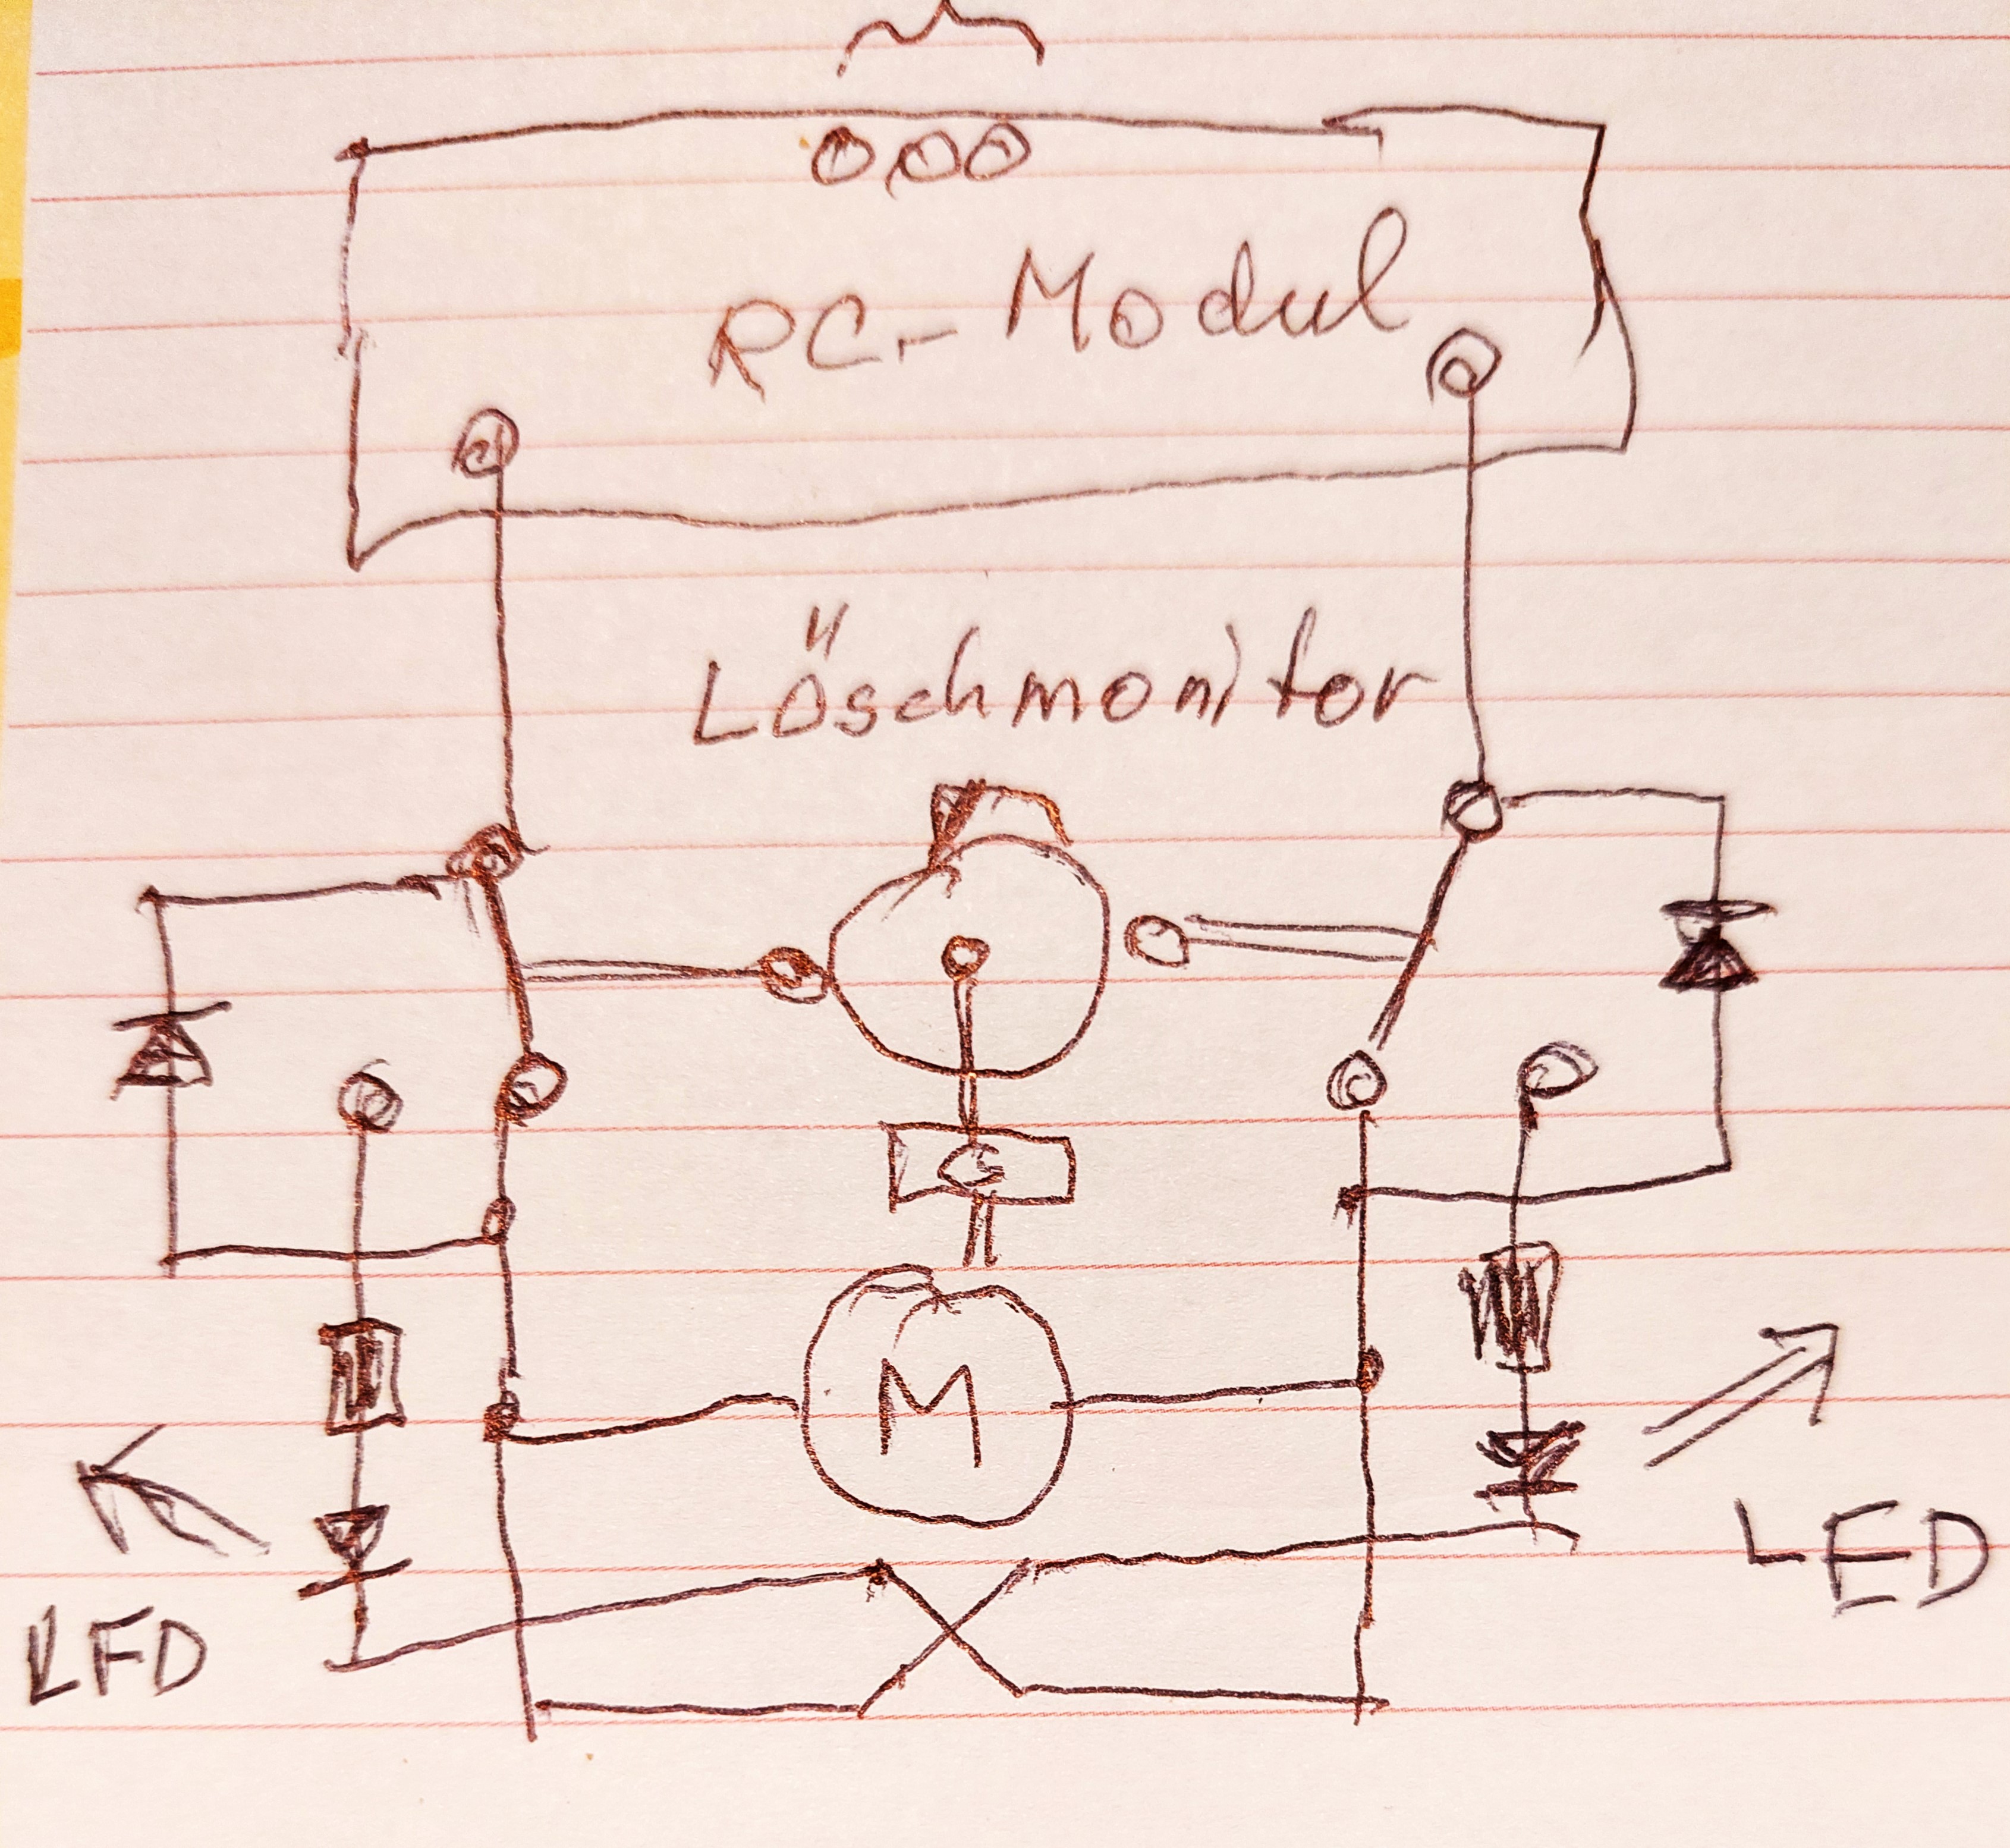 RC-Modul
Löschmonitor
G
M
LED
LED